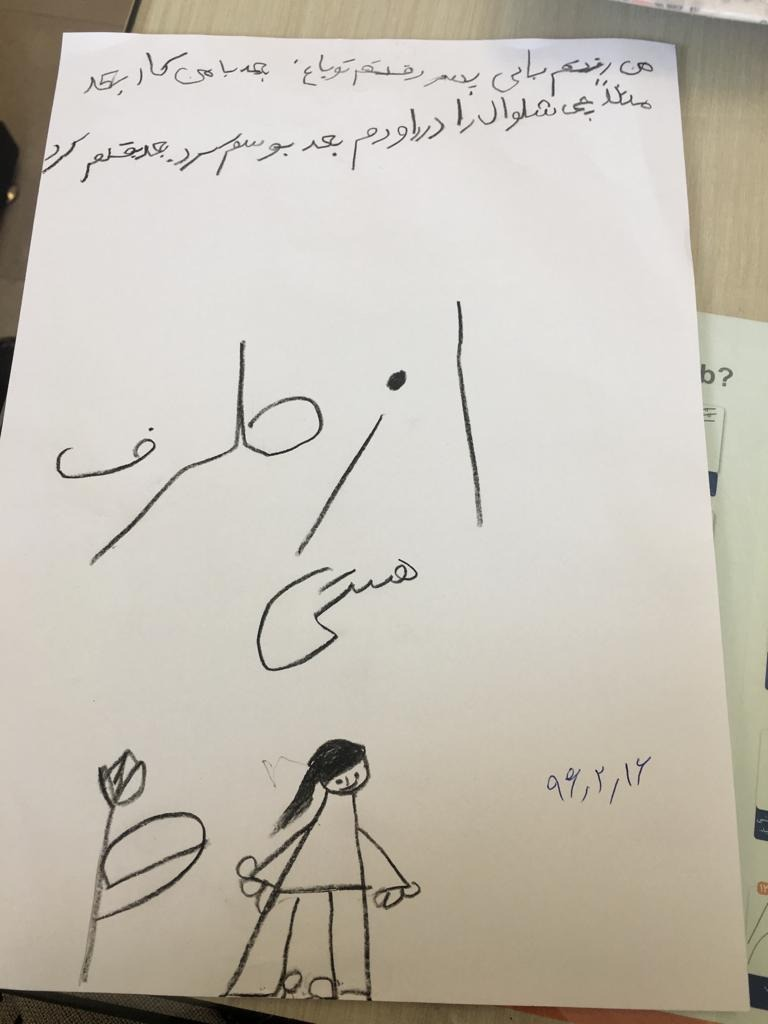 من رفتم بایی پسر رفتم تو باغ. بعد با من کار بد
مثلاً چی شلوال را درراودم بعد بوسم کرد. بعد بقلم کرد
از طرف
هستی
۹۹,۲,۱۶
b?